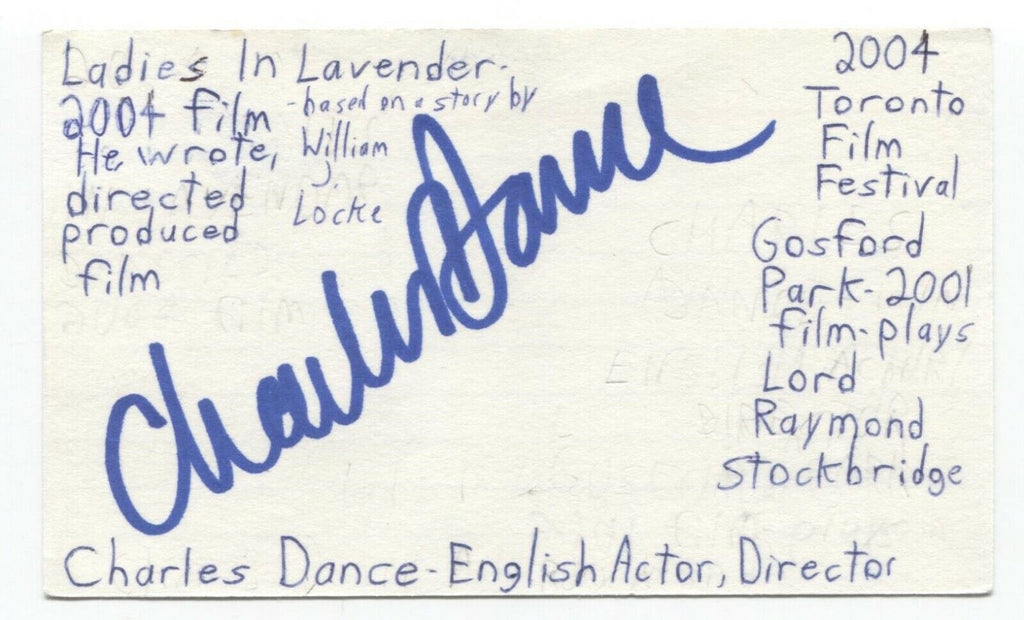 Ladies In Lavender-
2004 film
-based on a story by
William
J.
Locke
He wrote,
directed
produced
film
2004
Toronto
Film
Festival
Gosford
Park-2001
film-plays
Lord
Raymond
Stockbridge
Charles Dance
Charles Dance-English Actor, Director